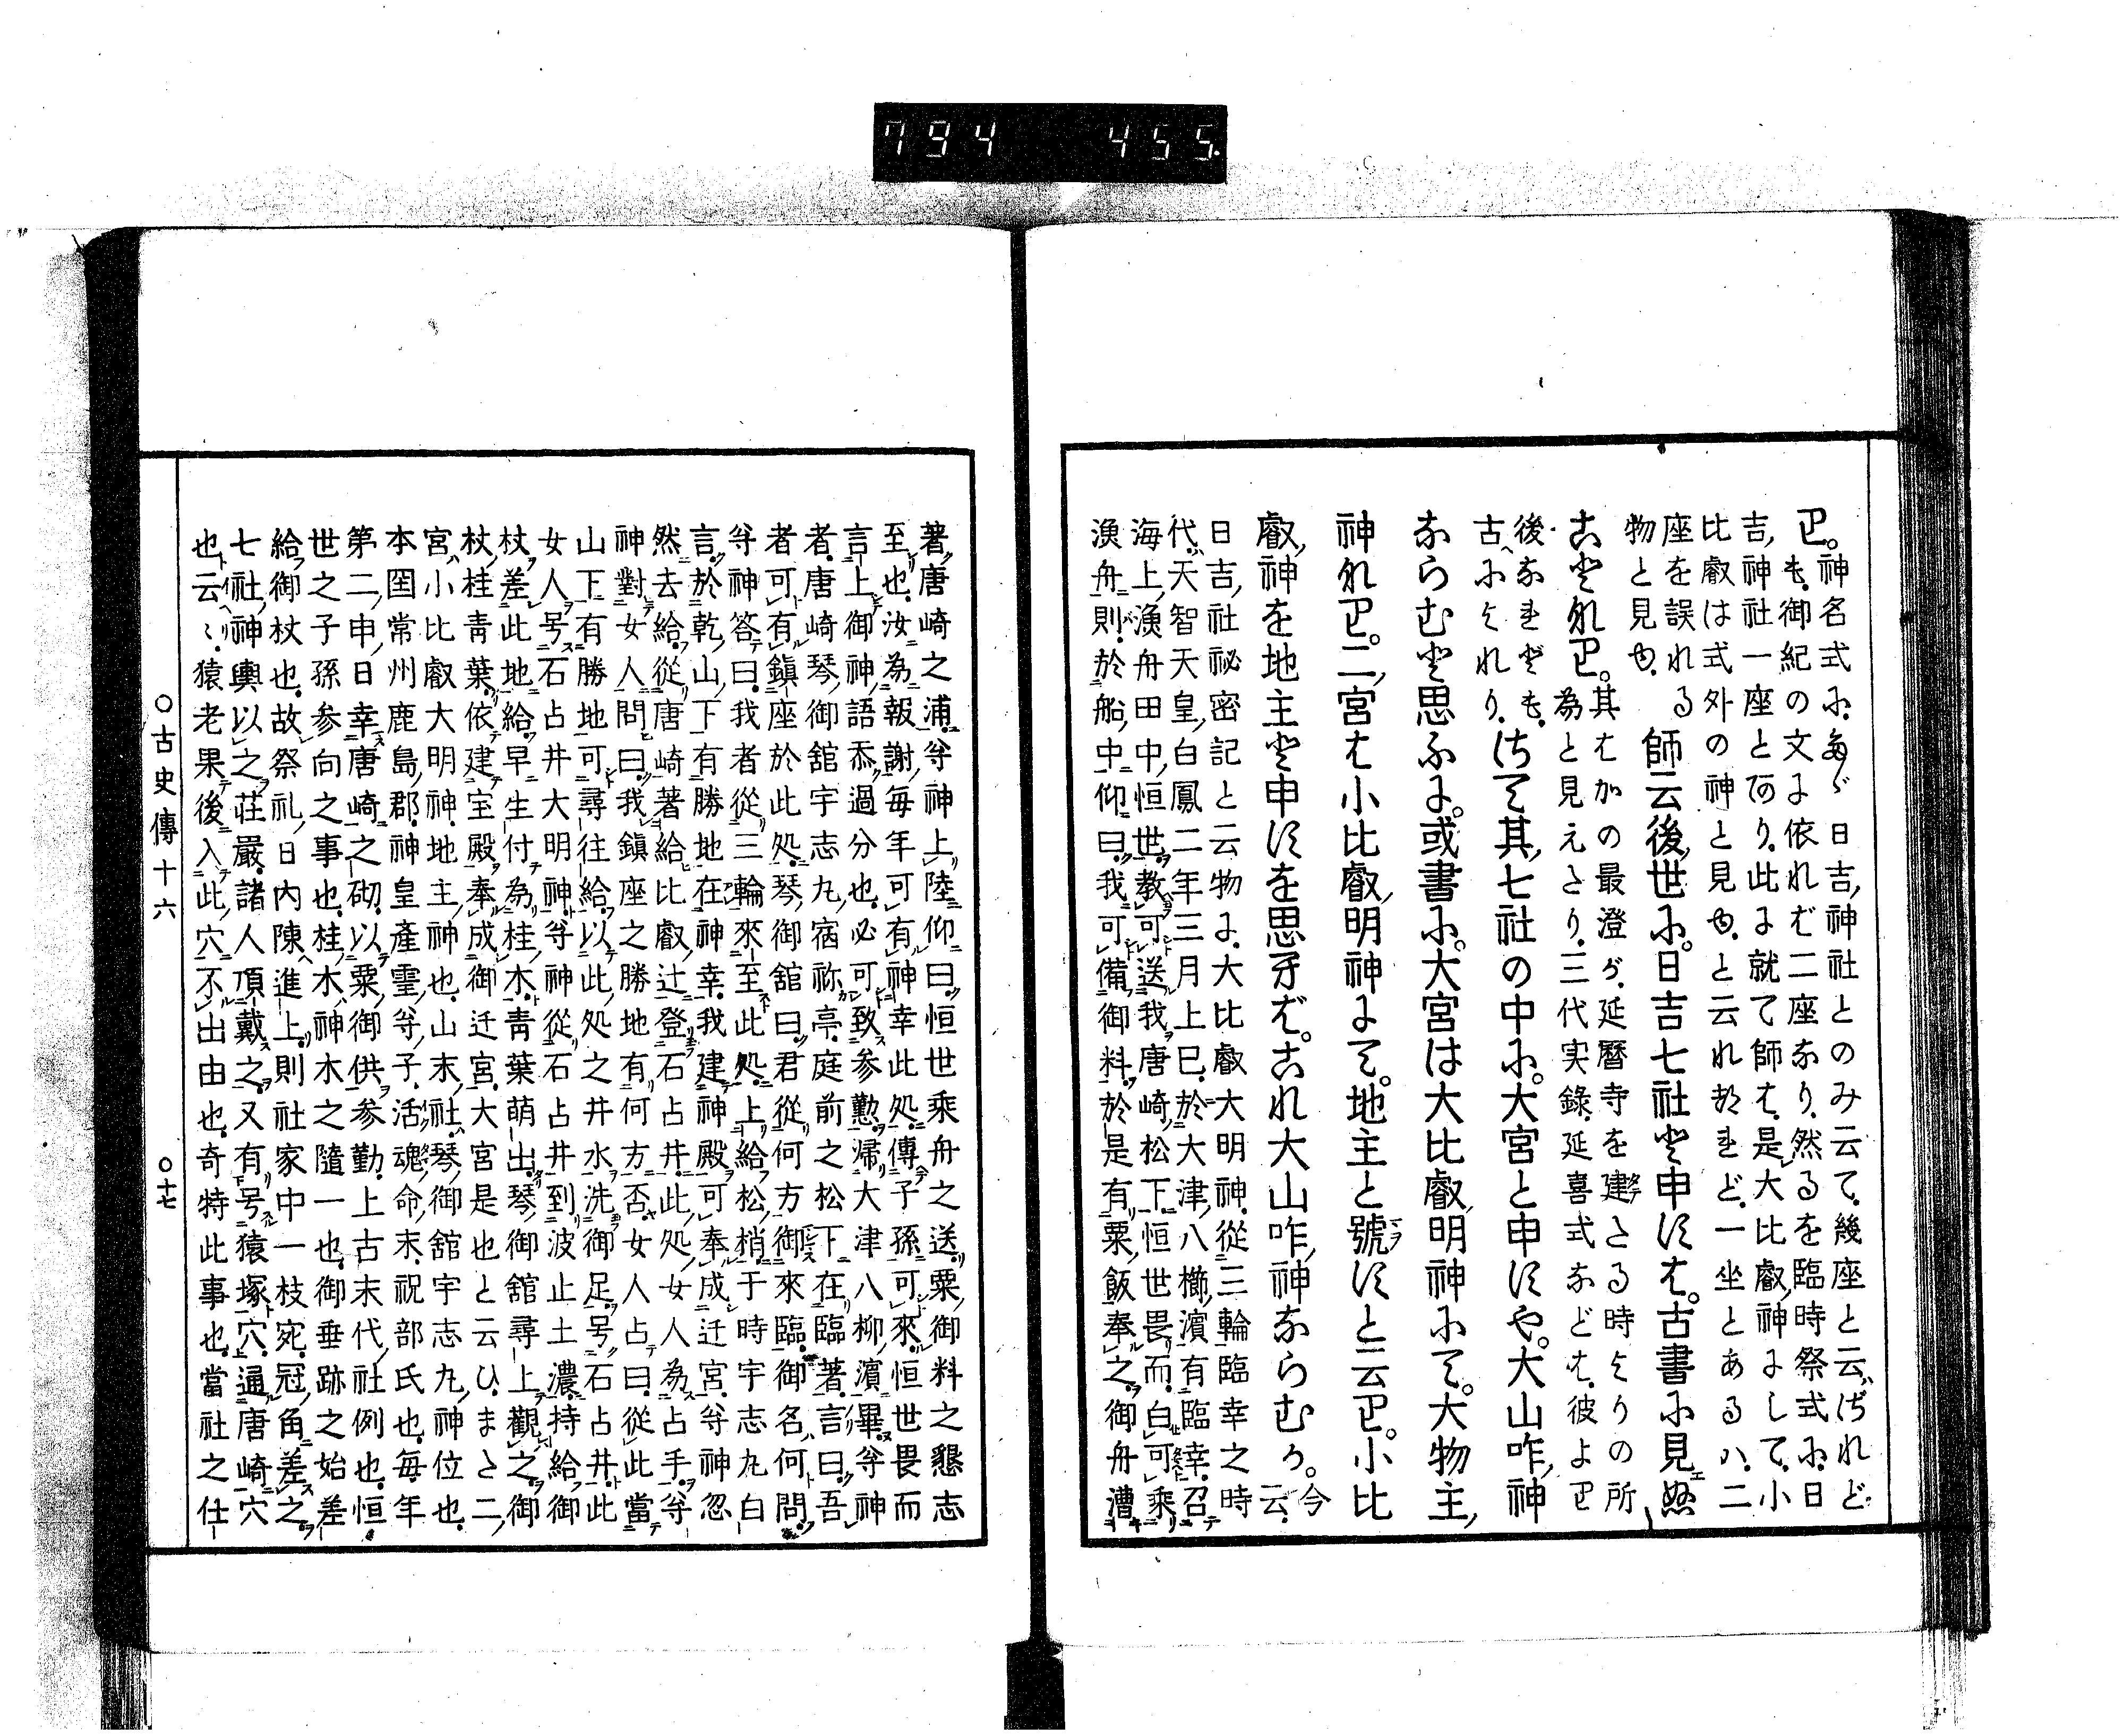 794 455
り。神名式に、たゞ日吉神社とのみ云て、幾座と云ざれど
も、御紀の文に依れば二座なり、然るを臨時祭式に、日
吉神社一座と有り、此に就て師は、是大比叡神にして、小
比叡は式外の神と見ゆ、と云れたれど、一坐とある八、二
座を誤れる
物と見ゆ、
師云後世に。日吉七社と申すは。古書に見えぬ
ことなり。
其はかの最澄が、延曆寺を建たる時よりの所
為と見えたり、三代実錄、延喜式などは、彼より
後なれども、
古へによれり、
さて其七社の中に。大宮と申すや。大山咋神
ならむと思ふに。或書に。大宮は大比叡明神にて。大物主
神なり。二宮は小比叡明神にて。地主と號すと云り。小比
叡神を地主と申すを思へば。これ大山咋神ならむか。
今云、
日吉社祕密記と云物に、大比叡大明神、從三輪臨幸之時
代、天智天皇白鳳二年三月上巳、於大津八櫛濱有臨幸、召
海上漁舟田中恒世教可送我唐崎松下、恒世畏而、白可乘
漁舟則、於船中仰曰、我可備御料、於是有粟飯奉之、御舟漕
著唐崎之浦、尒神上陸仰曰、恒世乘舟之送、粟御料之懇志
至也、汝為報謝、每年可有神幸此処、傳子孫可來、恒世畏而
言上、御神語忝過分也、必可致参懃、帰大津八柳濱畢、尒神
者、唐崎琴御舘宇志丸宿祢亭、庭前之松下在臨著、言曰、吾
者可有鎮座於此処、琴御舘曰、君從何方御來臨、御名何問、
尒神答曰、我者從三輪來至此処、上給松梢、于時宇志丸白
言、於乾山下有勝地在神幸、我建神殿可奉成迁宮、尒神忽
然去給、從唐崎著給比叡辻、登石占井、此処女人為占手、尒
神對女人問曰、我鎮座之勝地有何方否、女人占曰、從此當
山下有勝地、可尋往給、以此処之井水洗御足、号石占井、此
女人号石占井大明神、尒神從石占井到波止土濃、持給御
杖差此地給、早生付為桂木、青葉萌出、琴御舘尋上觀之、御
杖桂青葉、依建宝殿、奉成御迁宮、大宮是也と云ひ、また二
宮八小比叡大明神、地主神也、山末社、琴御舘宇志丸神位也、
本国常州鹿島郡、神皇產靈尒子、活魂命末、祝部氏也、每年
第二申日幸唐崎之砌、以粟御供参勤、上古末代社例也、恒
世之子孫参向之事也、桂木八神木之隨一也、御垂跡之始差
給御杖也、故祭礼日內陳進上、則社家中一枝宛、冠角差之、
七社神輿以之莊嚴、諸人頂戴之、又有号猿塚穴、通唐崎穴
也云〻、猿老果後入此穴、不出由也、奇特此事也、當社之仕
○古史傳十六
○十七